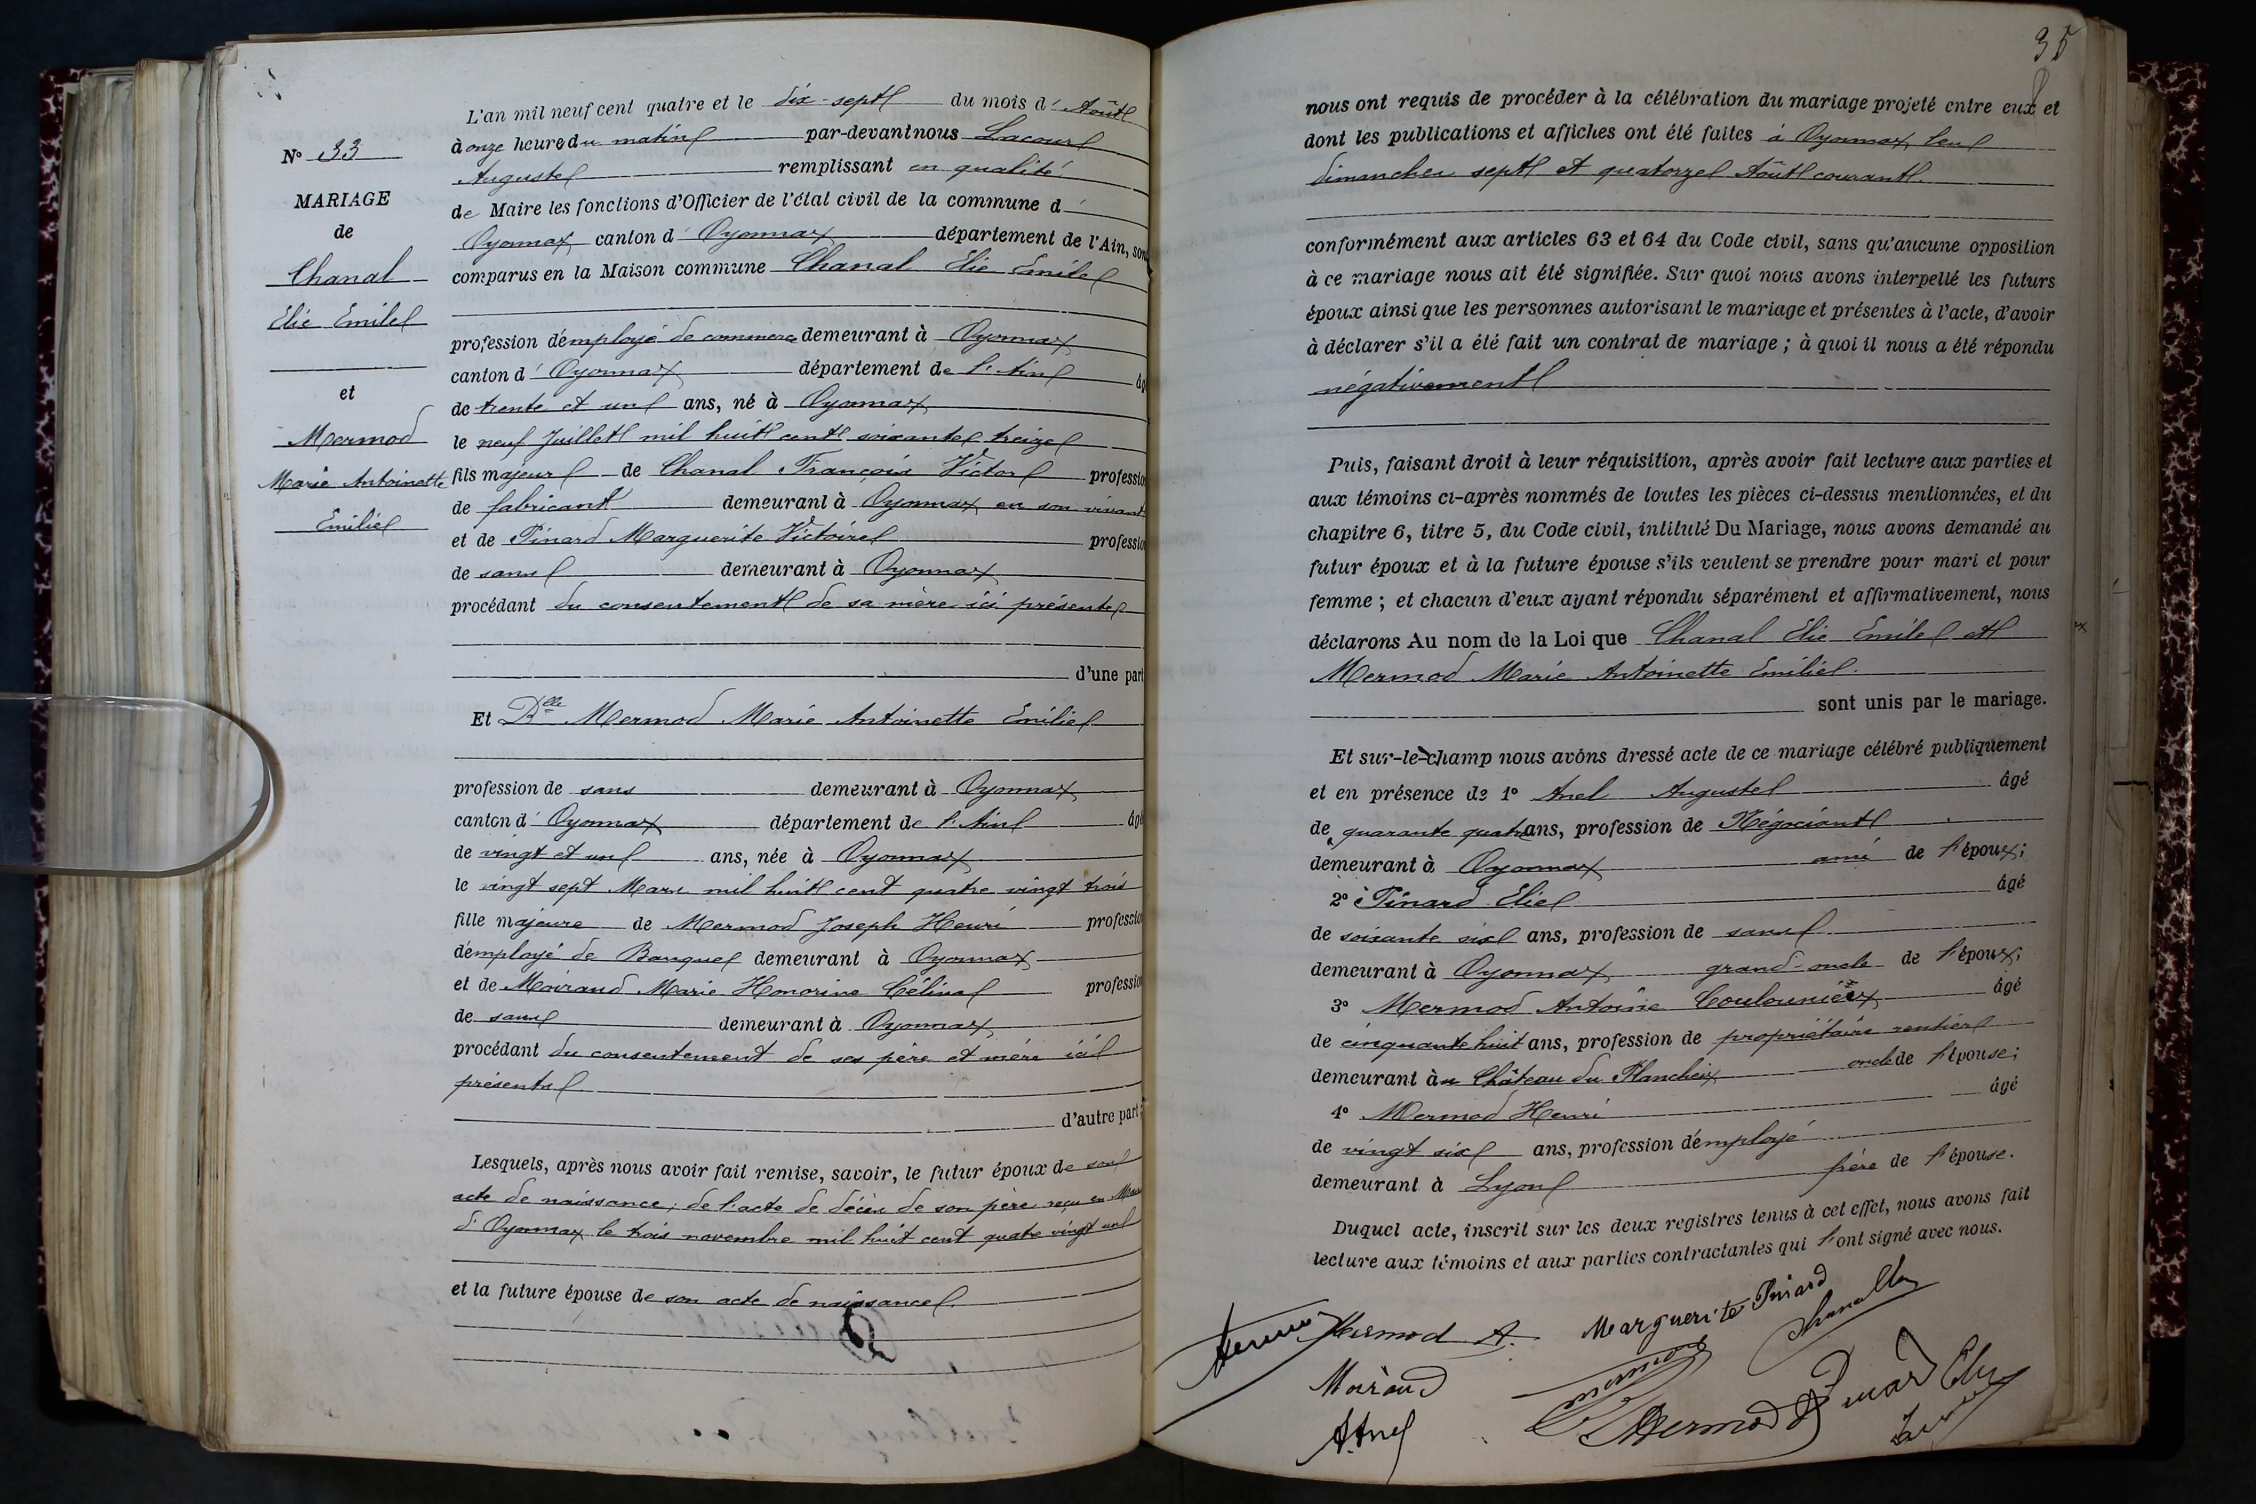 N° 33
MARIAGE
de
Chanal
Elie Emile
et
Mermod
Marie Antoinette
Emilie
L'an mil neuf cent quatre et le dix-sept du mois d' Août
à onze heure du matin par-devant nous Lacour
Auguste remplissant en qualité
de Maire les fonctions d'Officier de l'état civil de la commune d'
Oyonnax canton d' Oyonnax département de l'Ain, sont
comparus en la Maison commune Chanal Elie Emile
profession d'employé de commerce demeurant à Oyonnax
canton d' Oyonnax département de l'Ain âgé
de trente et un ans, né à Oyonnax
le neuf Juillet mil huit cent soixante treize
fils majeur de Chanal François Victor profession
de fabricant demeurant à Oyonnax en son vivant
et de Pinard Marguerite Victoire profession
de sans demeurant à Oyonnax
procédant du consentement de sa mère ici présente
d'une part
Et Dlle Mermod Marie Antoinette Emilie
profession de sans demeurant à Oyonnax
canton d' Oyonnax département de l'Ain âgé
de vingt et un ans, née à Oyonnax
le vingt sept Mars mil huit cent quatre vingt trois
fille majeure de Mermod Joseph Henri profession
d'employé de Banque demeurant à Oyonnax
et de Moiraud Marie Honorine Célina profession
de sans demeurant à Oyonnax
procédant du consentement de ses père et mère ici
présents
d'autre part;
Lesquels, après nous avoir fait remise, savoir, le futur époux de son
acte de naissance; de l'acte de décès de son père reçu en Mairie
d'Oyonnax le trois novembre mil huit cent quatre vingt un
et la future épouse de son acte de naissance.
35
nous ont requis de procéder à la célébration du mariage projeté entre eux et
dont les publications et affiches ont été faites à Oyonnax les
dimanches sept et quatorze Août courant.
conformément aux articles 63 et 64 du Code civil, sans qu'aucune opposition
à ce mariage nous ait été signifiée. Sur quoi nous avons interpellé les futurs
époux ainsi que les personnes autorisant le mariage et présentes à l'acte, d'avoir
à déclarer s'il a été fait un contrat de mariage; à quoi il nous a été répondu
négativement
Puis, faisant droit à leur réquisition, après avoir fait lecture aux parties et
aux témoins ci-après nommés de toutes les pièces ci-dessus mentionnées, et du
chapitre 6, titre 5, du Code civil, intitulé Du Mariage, nous avons demandé au
futur époux et à la future épouse s'ils veulent se prendre pour mari et pour
femme; et chacun d'eux ayant répondu séparément et affirmativement, nous
déclarons Au nom de la Loi que Chanal Elie Emile et
Mermod Marie Antoinette Emilie.
sont unis par le mariage.
Et sur-le-champ nous avons dressé acte de ce mariage célébré publiquement
et en présence de 1° Anel Auguste âgé
de quarante quatre ans, profession de Négociant
demeurant à Oyonnax ami de l'époux;
2° Pinard Elie âgé
de soixante six ans, profession de sans
demeurant à Oyonnax grand-oncle de l'époux;
3° Mermod Antoine âgé
de cinquante huit ans, profession de propriétaire rentier
demeurant au Château du Plancheix oncle de l'épouse;
4° Mermod Henri âgé
de vingt six ans, profession d'employé
demeurant à Lyon frère de l'épouse.
Duquel acte, inscrit sur les deux registres tenus à cet effet, nous avons fait
lecture aux témoins et aux parties contractantes qui l'ont signé avec nous.
Mermod A. Marguerite Pinard
Moiraud
A. Anel Mermod Pinard Elie